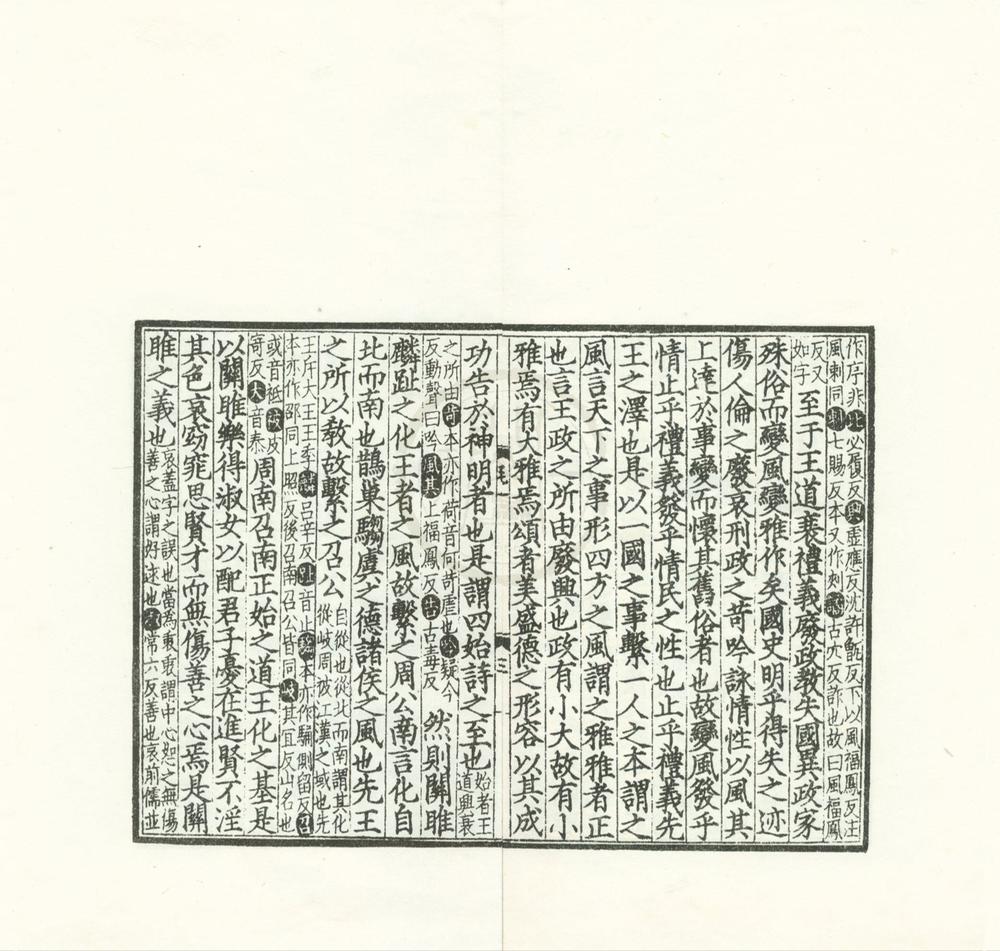 作序非比必履反興虛應反沈許甑反下以風福鳳反注
風刺同刺七賜反本又作刾古穴反詐也故曰風福鳳
反又如字至于王道衰禮義廢政教失國異政家
殊俗而變風變雅作矣國史明乎得失之迹
傷人倫之廢哀刑政之苛吟詠情性以風其
上達於事變而懷其舊俗者也故變風發乎
情止乎禮義發乎情民之性也止乎禮義先
王之澤也是以一國之事繫一人之本謂之
風言天下之事形四方之風謂之雅雅者正
也言王政之所由廢興也政有小大故有小
雅焉有大雅焉頌者美盛德之形容以其成
功告於神明者也是謂四始詩之至也始者王道興衰
之所由苛本亦作荷音何苛虐也吟疑今
反動聲曰吟風其上福鳳反告古毒反然則關雎
麟趾之化王者之風故繫之周公南言化自
北而南也鵲巢騶虞之德諸侯之風也先王
之所以教故繫之召公自從也從北而南謂其化從岐周被江漢之域也先
王斥大王王季麟呂辛反趾音止騶本亦作騶側留反召
本亦作邵同上照反後召南召公皆同岐其宜反山名也
或音祗被皮寄反大音泰周南召南正始之道王化之基是
以關雎樂得淑女以配君子憂在進賢不淫
其色哀窈窕思賢才而無傷善之心焉是關
雎之義也哀蓋字之誤也當為衷衷謂中心恕之無傷善之心謂好逑也淑常六反善也哀前儒並